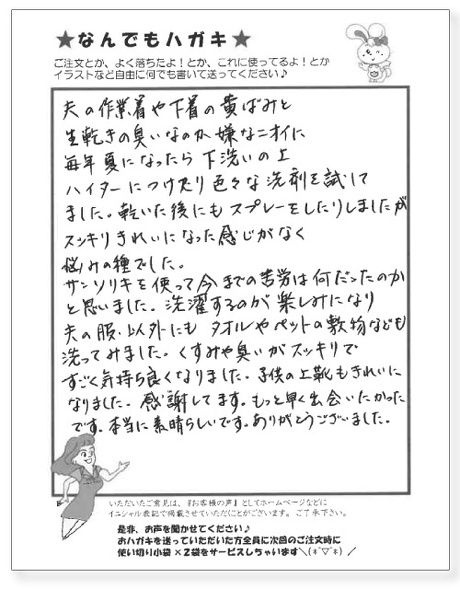 ★なんでもハガキ★
ご注文とか、よく落ちたよ！とか、これに使ってるよ！とか
イラストなど自由に何でも書いて送ってください♪
夫の作業着や下着の黄ばみと
生乾きの臭いなのか嫌なニオイに
毎年夏になったら下洗いの上
ハイターにつけたり色々な洗剤を試して
ました。乾いた後にもスプレーをしたりしましたが
スッキリきれいになった感じがなく
悩みの種でした。
サンソリキを使って今までの苦労は何だったのか
と思いました。洗濯するのが楽しみになり
夫の服以外にもタオルやペットの敷物なども
洗ってみました。くすみや臭いがスッキリで
すごく気持ち良くなりました。子供の上靴もきれいに
なりました。感謝してます。もっと早く出会いたかった
です。本当に素晴らしいです。ありがとうございました。
いただいたご意見は、『お客様の声』としてホームページなどに
イニシャル表記で掲載させていただくことがございます。ご了承下さい。
是非、お声を聞かせてください♪
おハガキを送っていただいた方全員に次回のご注文時に
使い切り小袋×2袋をサービスしちゃいます＼(*ﾟ∇ﾟ*)／